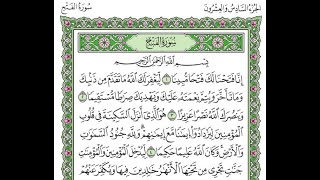 الجزء السادس والعشرون
سورة الفتح
سورة الفتح
بسم الله الرحمن الرحيم
إِنَّا فَتَحْنَا لَكَ فَتْحًا مُّبِينًا ١ لِّيَغْفِرَ لَكَ اللَّهُ مَا تَقَدَّمَ مِن ذَنۢبِكَ
وَمَا تَأَخَّرَ وَيُتِمَّ نِعْمَتَهُ عَلَيْكَ وَيَهْدِيَكَ صِرَٰطًا مُّسْتَقِيمًا ٢
وَيَنصُرَكَ اللَّهُ نَصْرًا عَزِيزًا ٣ هُوَ الَّذِي أَنزَلَ السَّكِينَةَ فِي قُلُوبِ
الْمُؤْمِنِينَ لِيَزْدَادُوا إِيمَٰنًا مَّعَ إِيمَٰنِهِمْ وَلِلَّهِ جُنُودُ السَّمَٰوَٰتِ
وَالْأَرْضِ وَكَانَ اللَّهُ عَلِيمًا حَكِيمًا ٤ لِّيُدْخِلَ الْمُؤْمِنِينَ وَالْمُؤْمِنَٰتِ
جَنَّٰتٍ تَجْرِي مِن تَحْتِهَا الْأَنْهَٰرُ خَٰلِدِينَ فِيهَا وَيُكَفِّرَ عَنْهُمْ